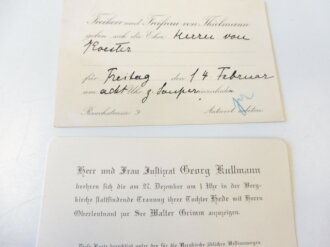 Freiherr und Freifrau von Thielmann
geben sich die Ehre Herrn von
Koester
für Freitag den 14. Februar
um acht Uhr z. Souper einzuladen
3 Antwort erbeten
Herr und Frau Justizrat Georg Kullmann
beehren sich die am 27. Dezember um 1 Uhr in der Berg-
kirche stattfindende Trauung ihrer Tochter Hede mit Herrn
Oberleutnant zur See Walter Grimm anzuzeigen.